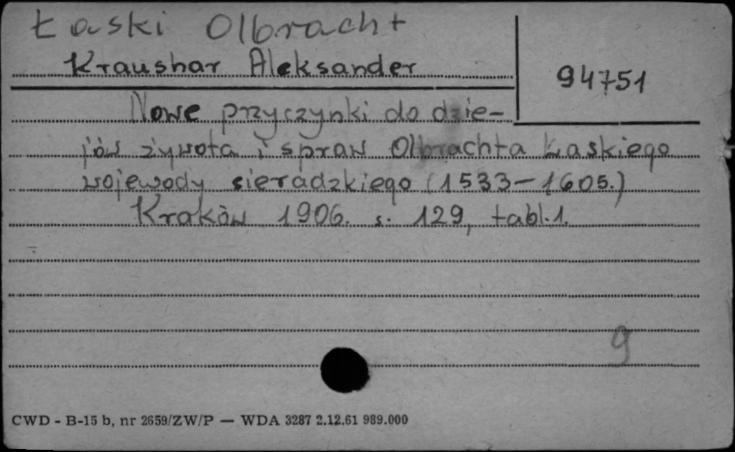 Łaski Olbracht
Kraushar Aleksander
94751
Nowe przyczynki do dzie-
jów żywota i spraw Olbrachta Łaskiego
wojewody sieradzkiego (1533-1605.)
Kraków 1906. s. 129, tabl. 1.
9
CWD - B-15 b, nr 2659/ZW/P — WDA 3287 2.12.61 989.000